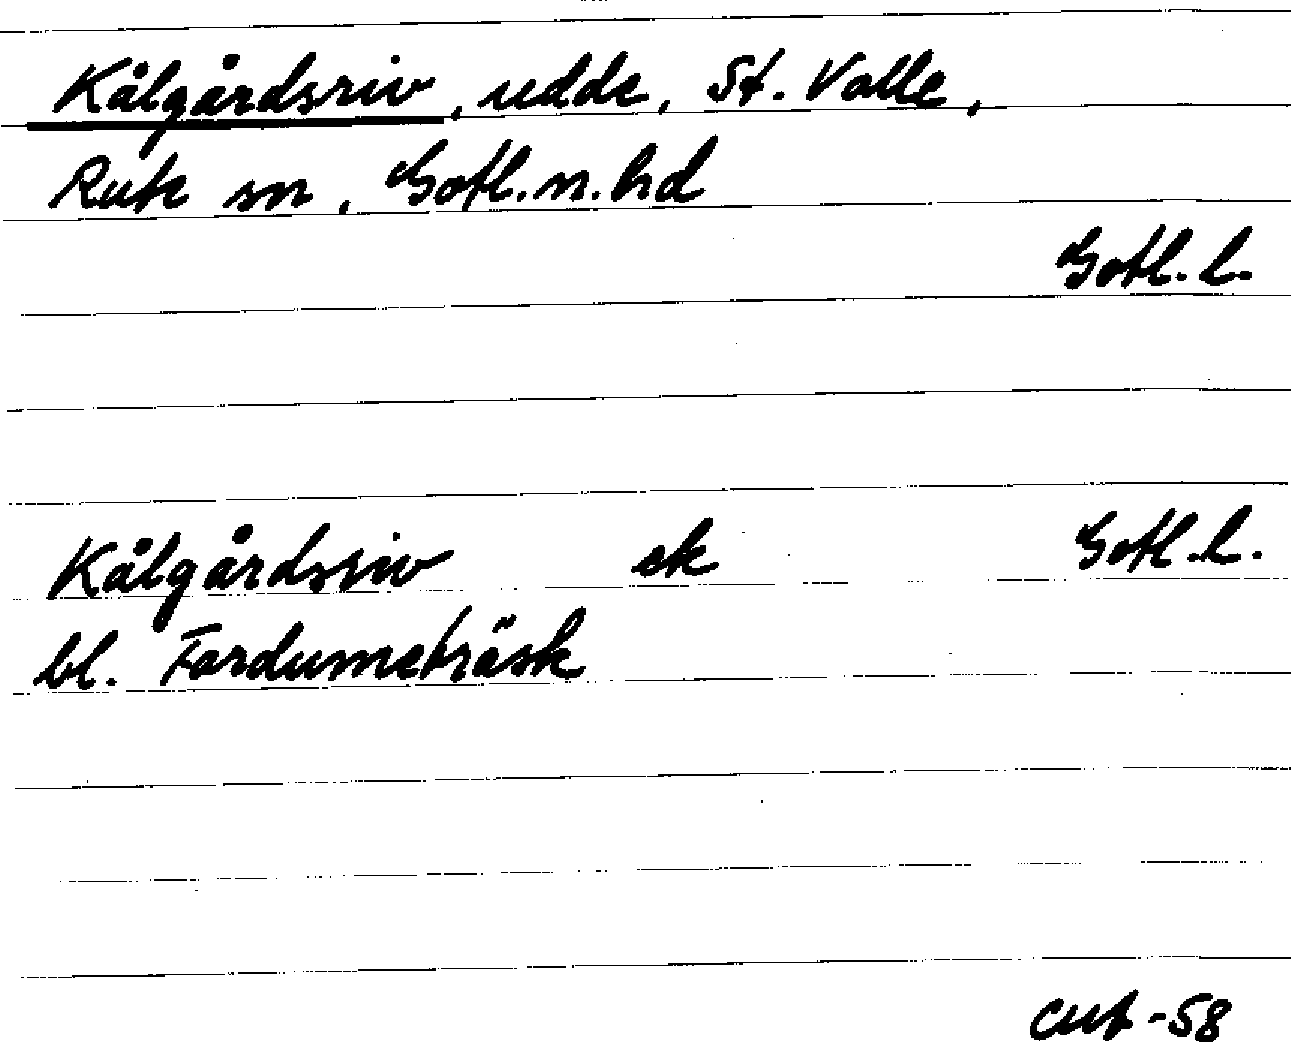 Kålgårdsriv, udde, St. Valle,
Rute sn, Gotl. n. hd
Gotl. l.
Kålgårdsriv ek Gotl. l.
bl. Fardumeträsk
cut -58